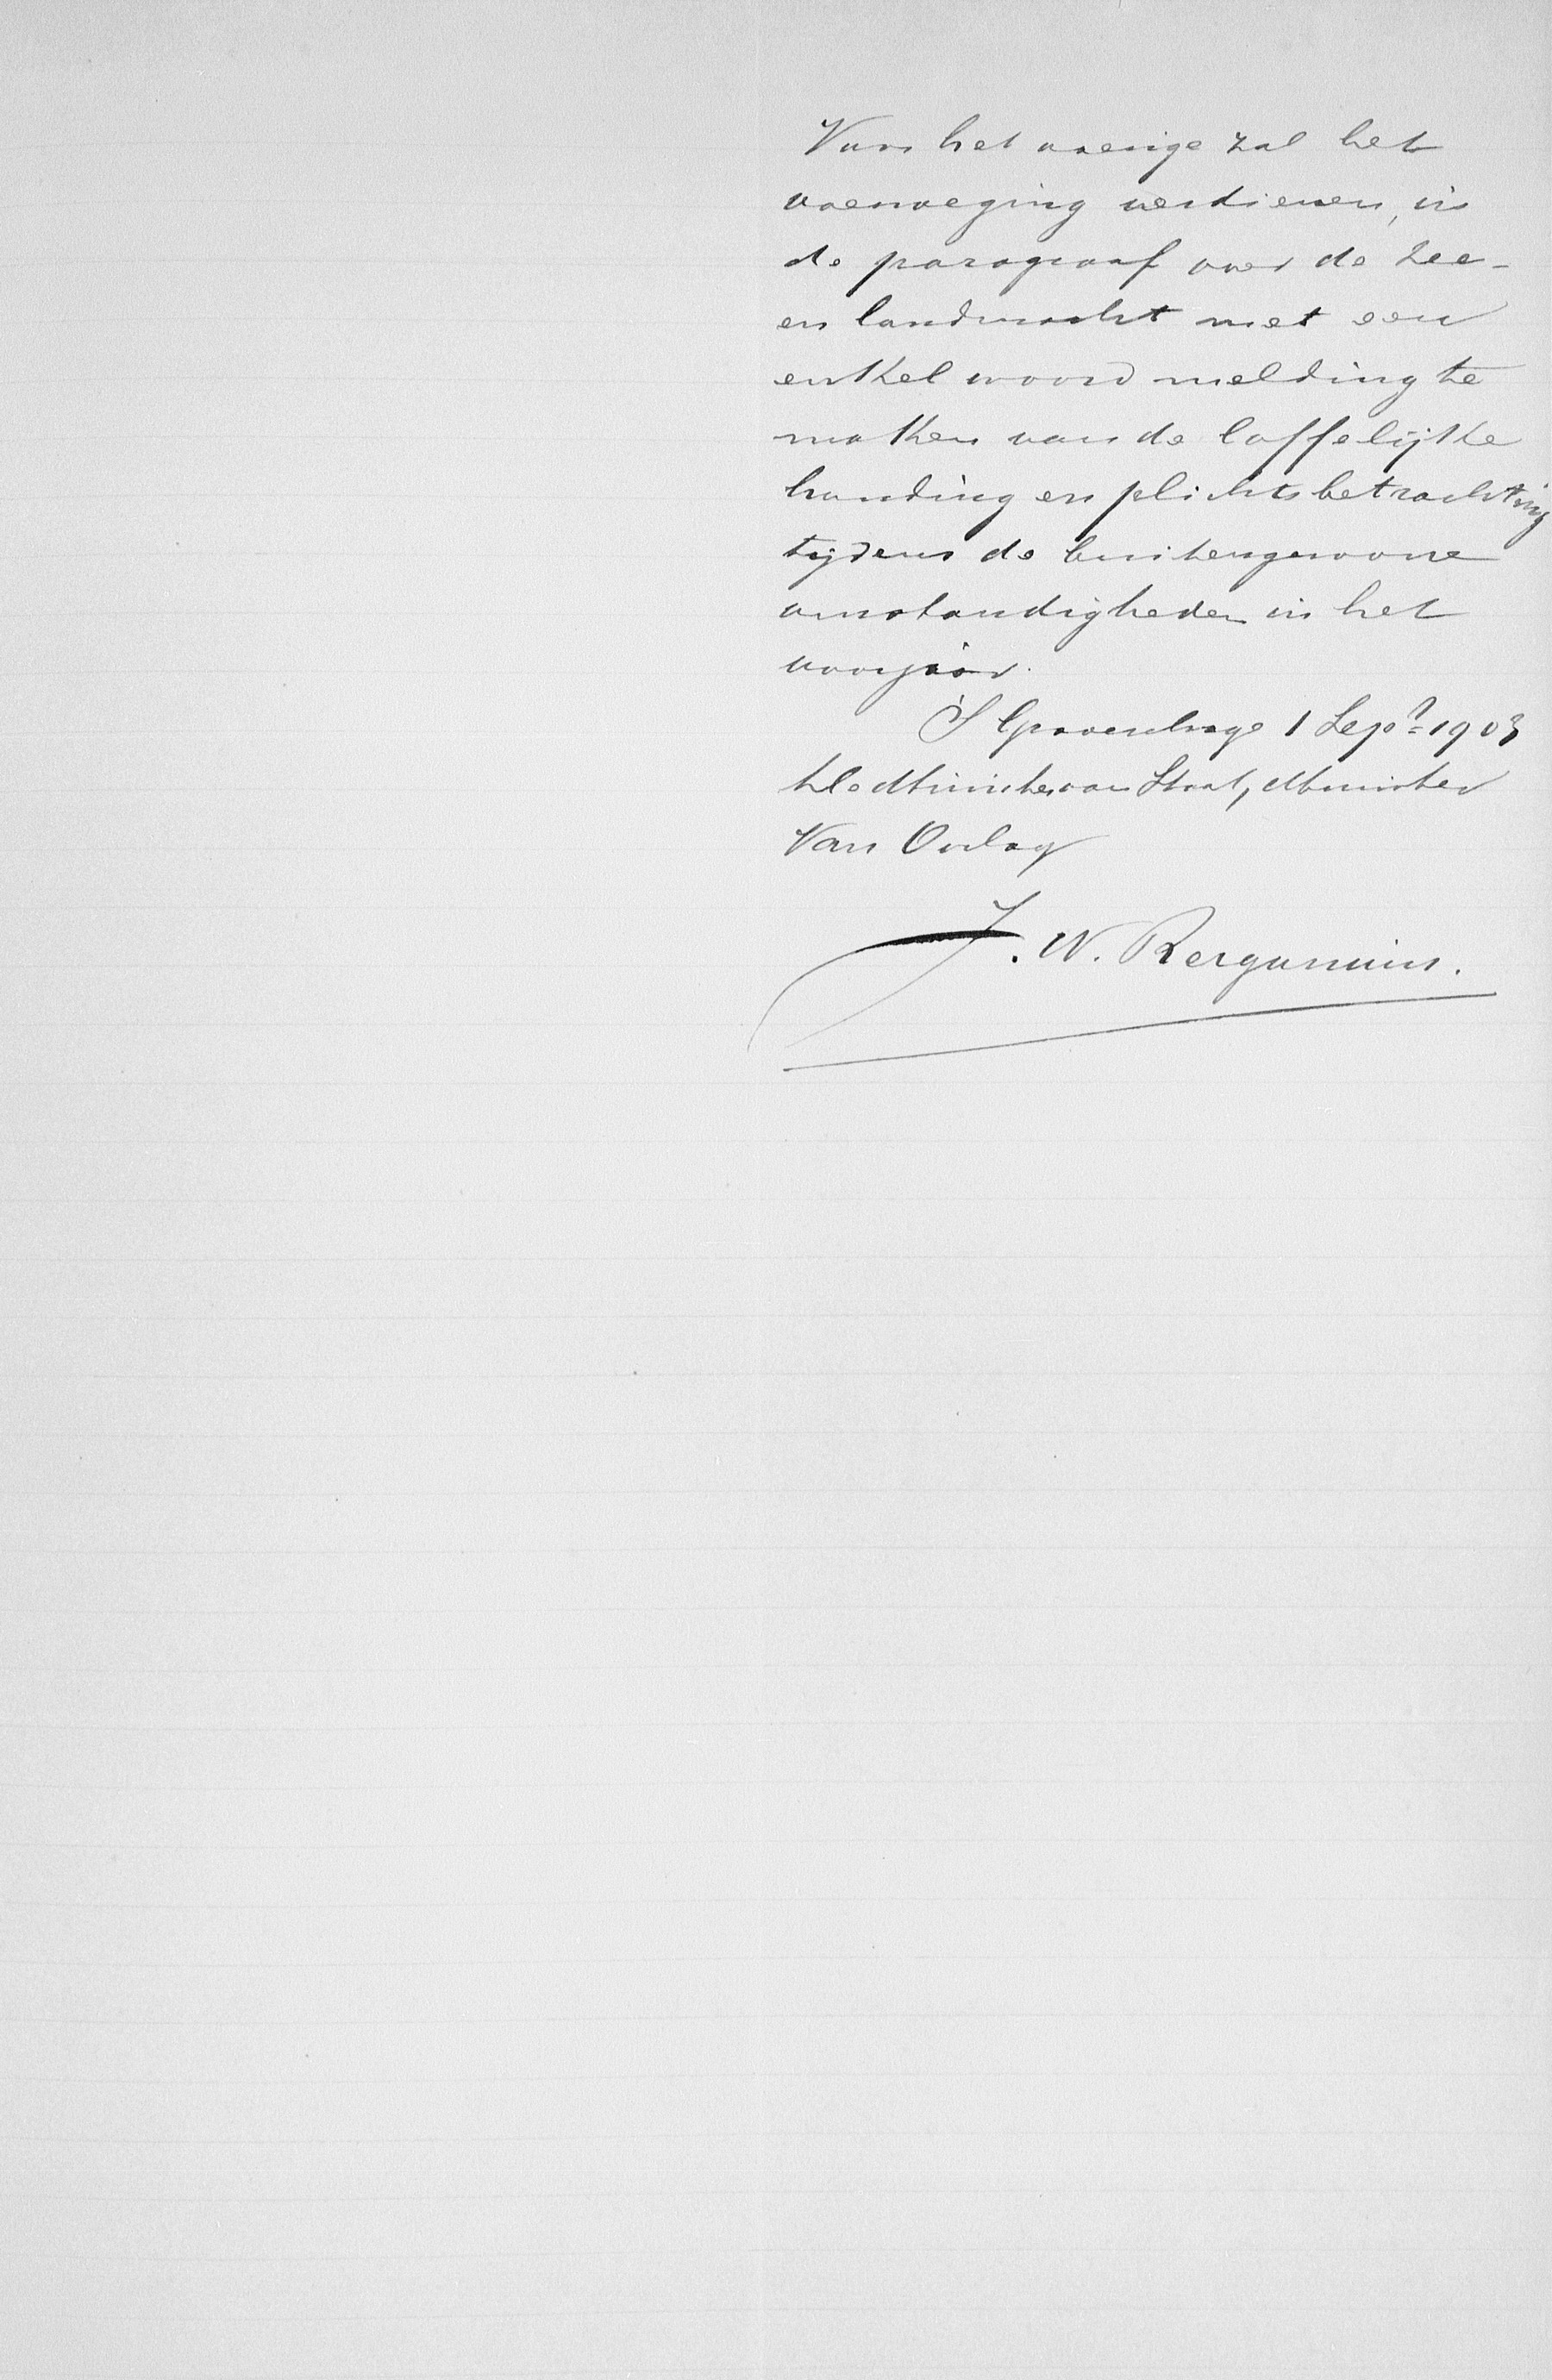 Voor het overige zal het
overweging verdienen, in
de paragraaf over de Zee-
en landmacht met een
enkel woord melding te
maken van de loffelijke
houding en plichtsbetrachting
tijdens de buitengewone
omstandigheden in het
voorjaar.
's Gravenhage 1 Sept. 1903
De Minister van Staat, Minister
Van Oorlog
J. W. Bergansius.